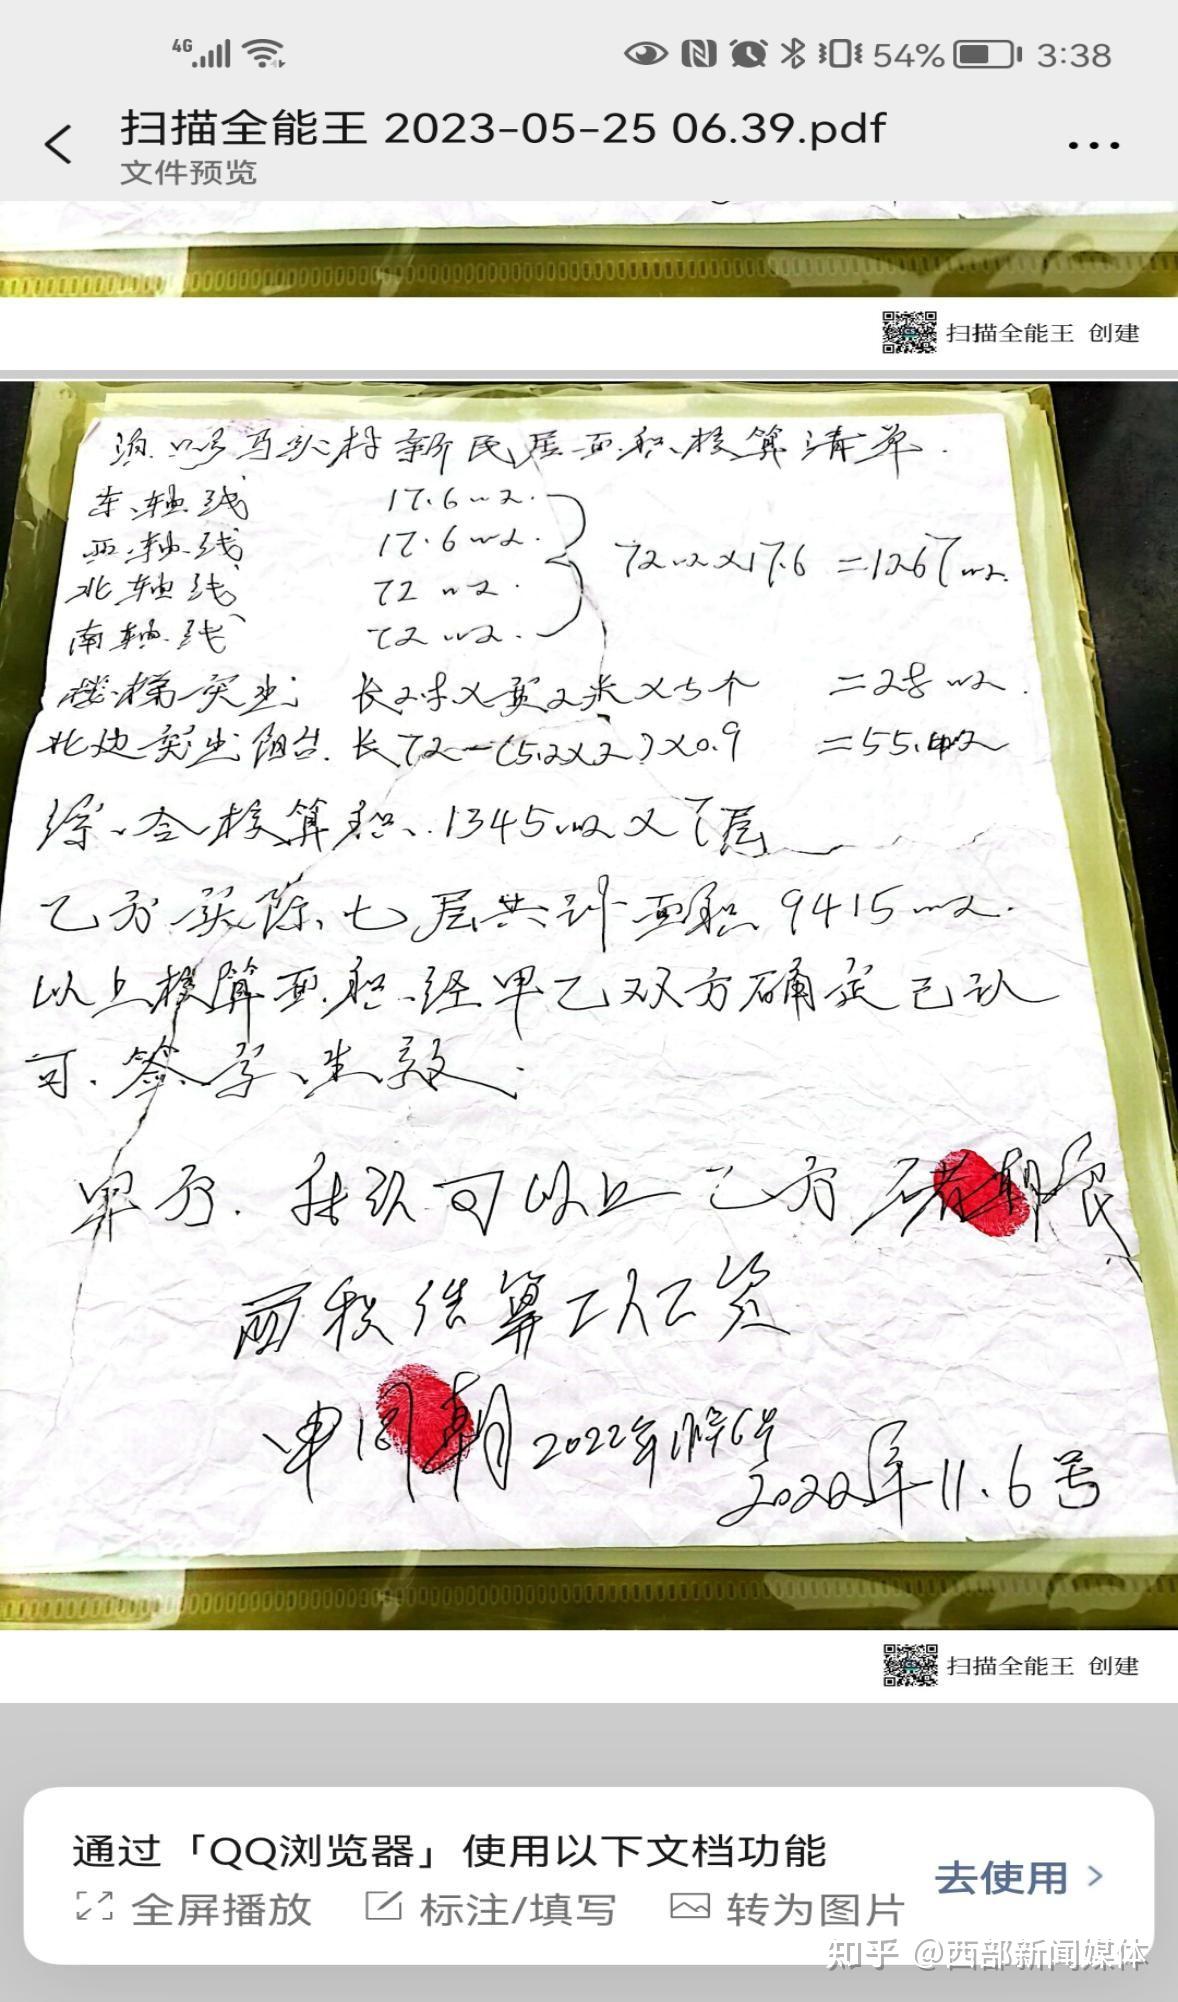 4G 54% 3:38
扫描全能王 2023-05-25 06.39.pdf
文件预览
扫描全能王 创建
马头村新民居面积核算清单.
东轴线 17.6m2.
西轴线 17.6m2.
72m2×17.6 =1267m2.
北轴线 72m2.
南轴线 72m2.
楼梯突出 长2.8×宽2米×5个 =28m2.
北边突出阳台. 长72-(5.2×2)×0.9 =55.4m2
综合核算面积 1345m2×7层
乙方实际七层共计面积 9415m2.
以上核算面积经甲乙双方确定已认
可、签字生效.
甲方. 我认可以上 乙方 褚朝民
面积结算工人工资
申同朝 2022年11月6号
2022年11.6号
扫描全能王 创建
通过「QQ浏览器」使用以下文档功能
去使用 >
全屏播放 标注/填写 转为图片
知乎 @西部新闻媒体